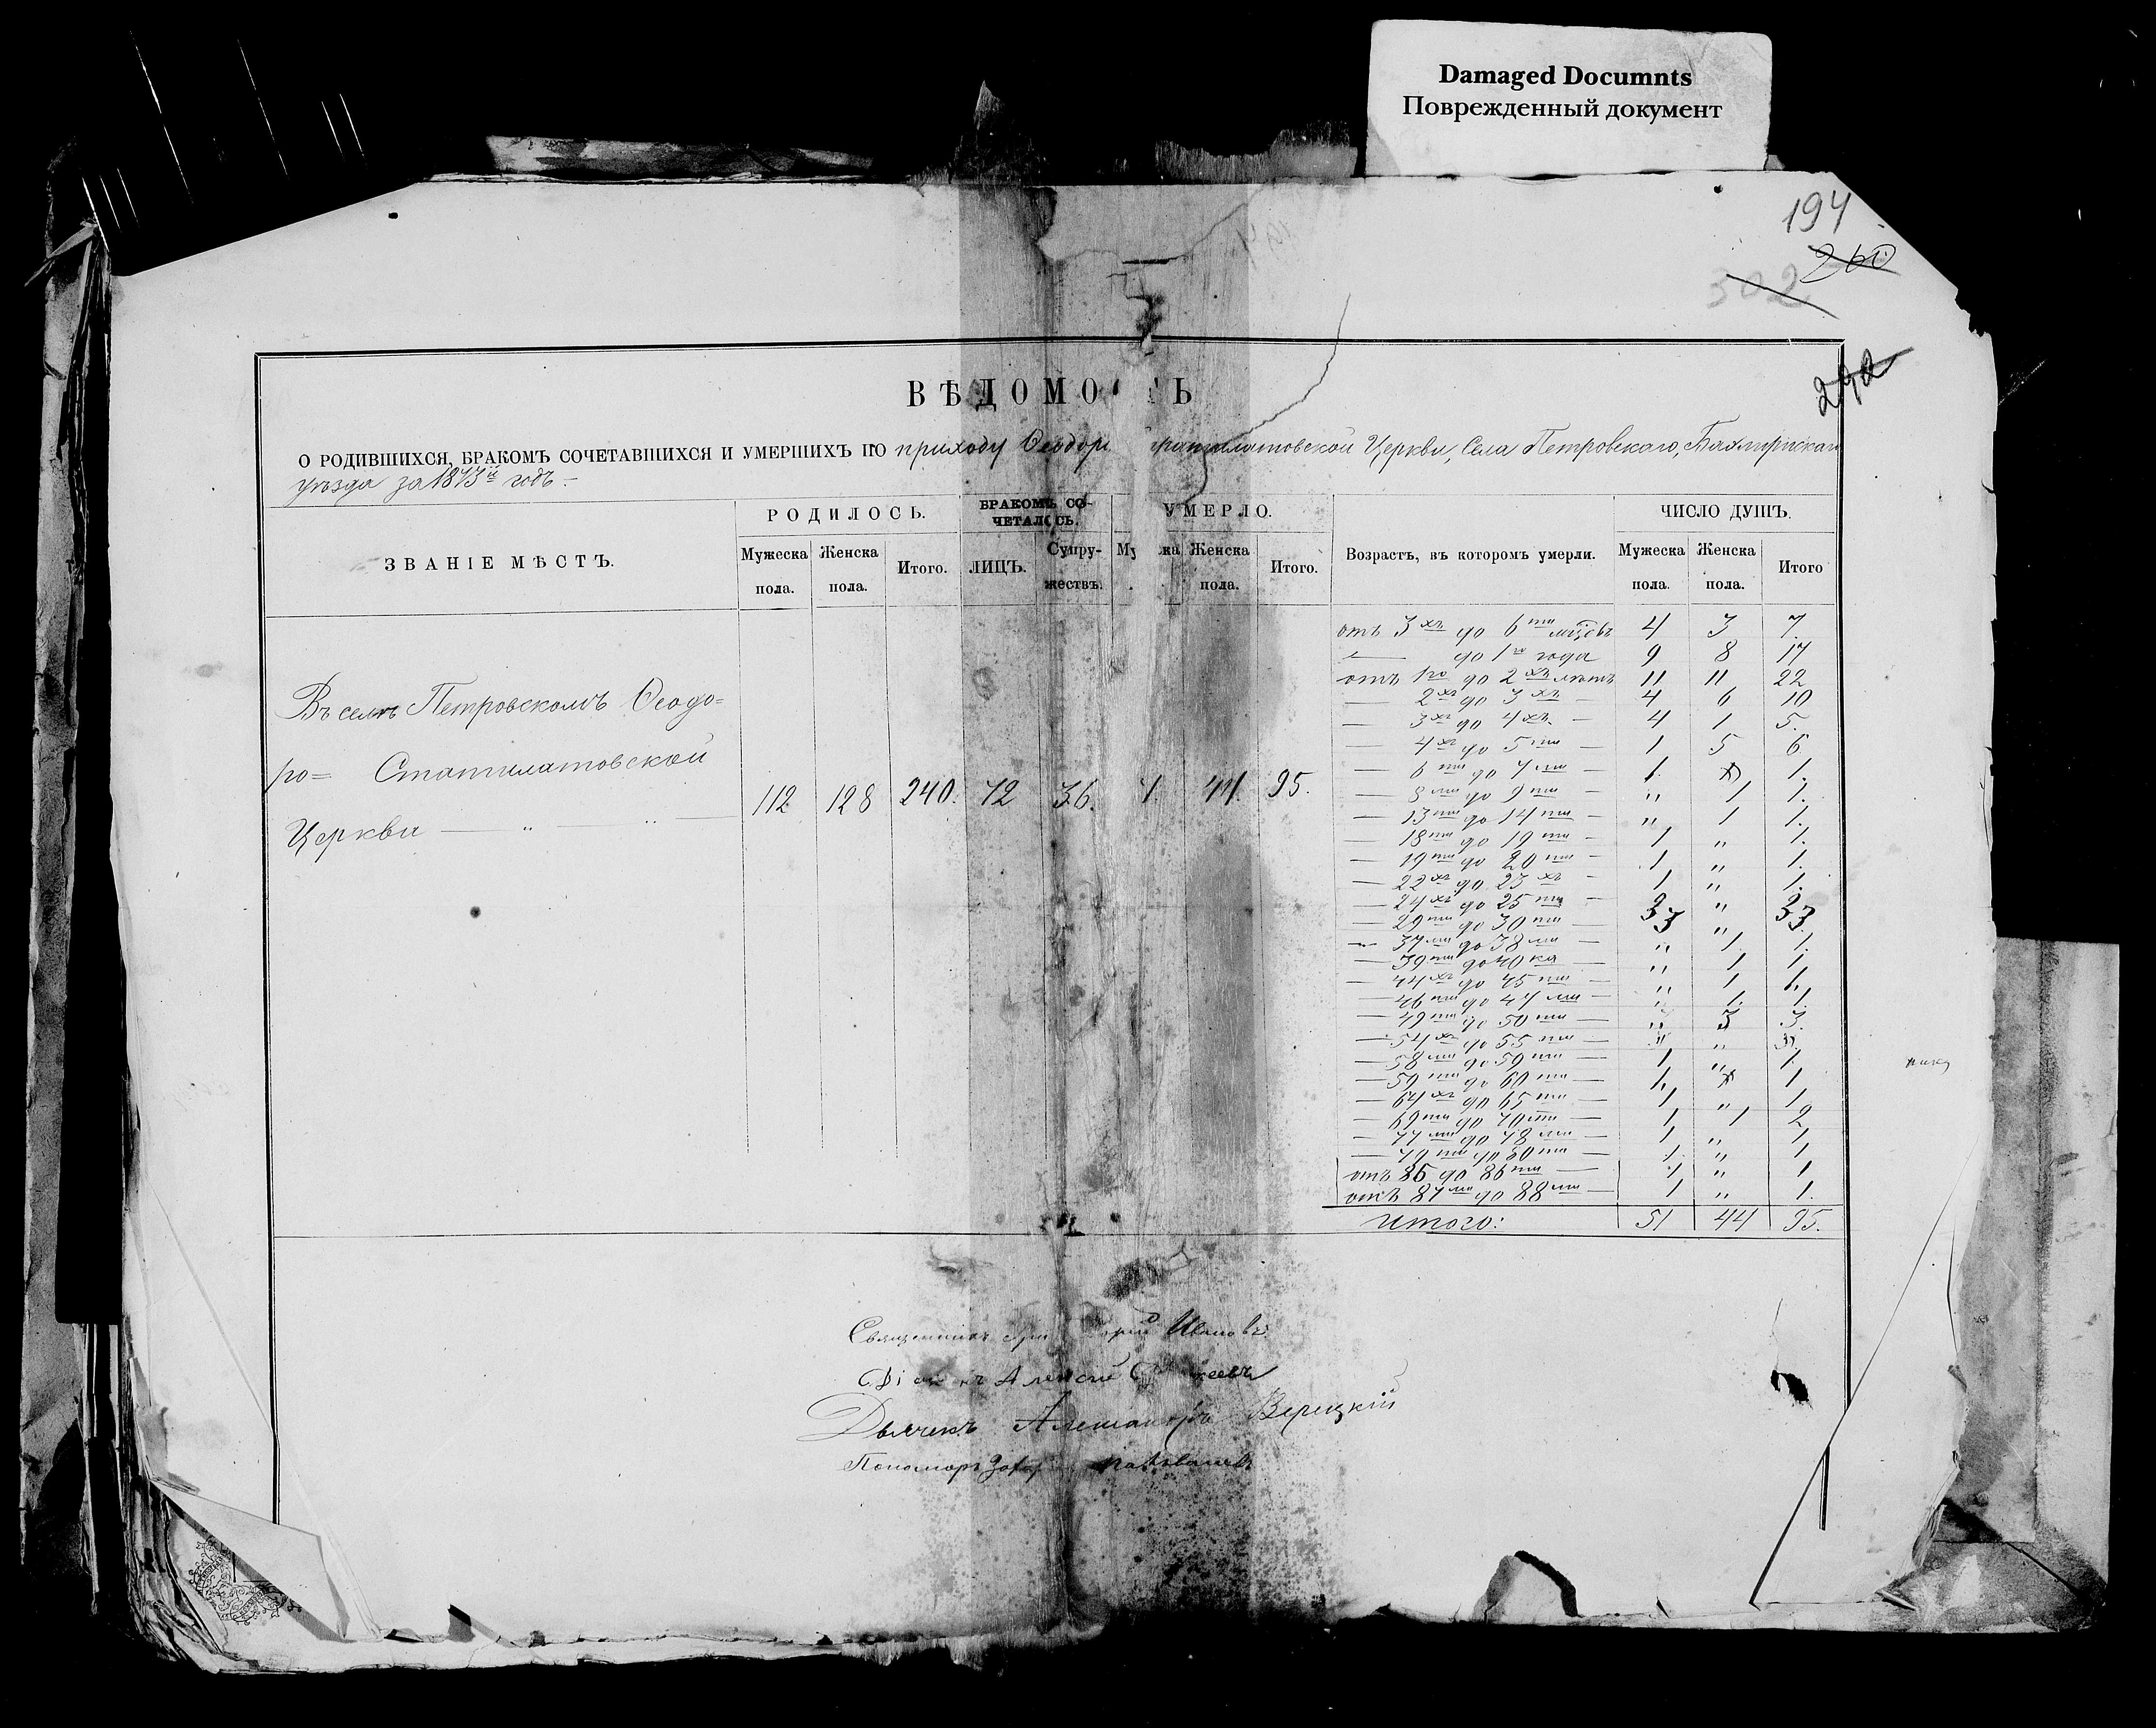 Damaged Documnts
Поврежденный документ
194
260
302
292
ВѢДОМО Ь
О РОДИВШИХСЯ, БРАКОМЪ СОЧЕТАВШИХСЯ И УМЕРШИХЪ ПО приходу Ѳеодоро Стратилатовской Церкви, Села Петровскаго, Бахмутскаго
уѣзда за 1873й годъ.-
ЗВАНІЕ МѢСТЪ. РОДИЛОСЬ. БРАКОМЪ СО- УМЕРЛО. Возрастъ, въ которомъ умерли. ЧИСЛО ДУШЪ.
ЧЕТАЛОСЬ.
Мужеска пола. Женска пола. Итого. ЛИЦЪ. Супру-жествъ. Женска пола. Итого. Мужеска пола. Женска пола. Итого
Въ селѣ Петровскомъ Ѳеодо=
ро= Статилатовской
Церкви — „ — „ —
112 128 240. 72 36. 44. 95.
отъ 3хъ до 6ти мѣсѣвъ 4 3 7.
— до 1го года 9 8 17
отъ 1го до 2хъ лѣтъ 11 11 22
— 2хъ до 3хъ — 4 6 10
— 3хъ до 4хъ — 4 1 5.
— 4хъ до 5ти — 1 5 6
— 6ти до 7ми — 1. 1.
— 8ми до 9ти — „ 1 1.
— 13ти до 14ти — „ 1 1.
— 18ти до 19ти — 1 „ 1.
— 19ти до 20ти — 1 „ 1.
— 22хъ до 23хъ — 1 „ 1.
— 24хъ до 25ти — „
— 29ти до 30ти 3 „ 3
— 37ми до 38ми — „ 1 1.
— 39ти до 40ка — „ 1 1
— 44хъ до 45ти — „ 1 1.
— 46ти до 47ми — „ 1. 1.
— 49ти до 50ти — „ 3 3.
— 54хъ до 55ти — „
— 58ми до 59ти — 1 „ 1.
— 59ти до 60ти — 1. 1
— 64хъ до 65ти — 1 „ 1
— 69ти до 70ти — 1 1 2
— 77ми до 78ми — 1 „ 1
— 79ти до 80ти — 1 „ 1
отъ 85 до 86ти — 1 „ 1
отъ 87ми до 88ми — 1 „ 1.
Итого: 51 44 95.
Священникъ Ивановъ
Алексѣй
Дьячекъ Александръ Верецкій
Пономарь